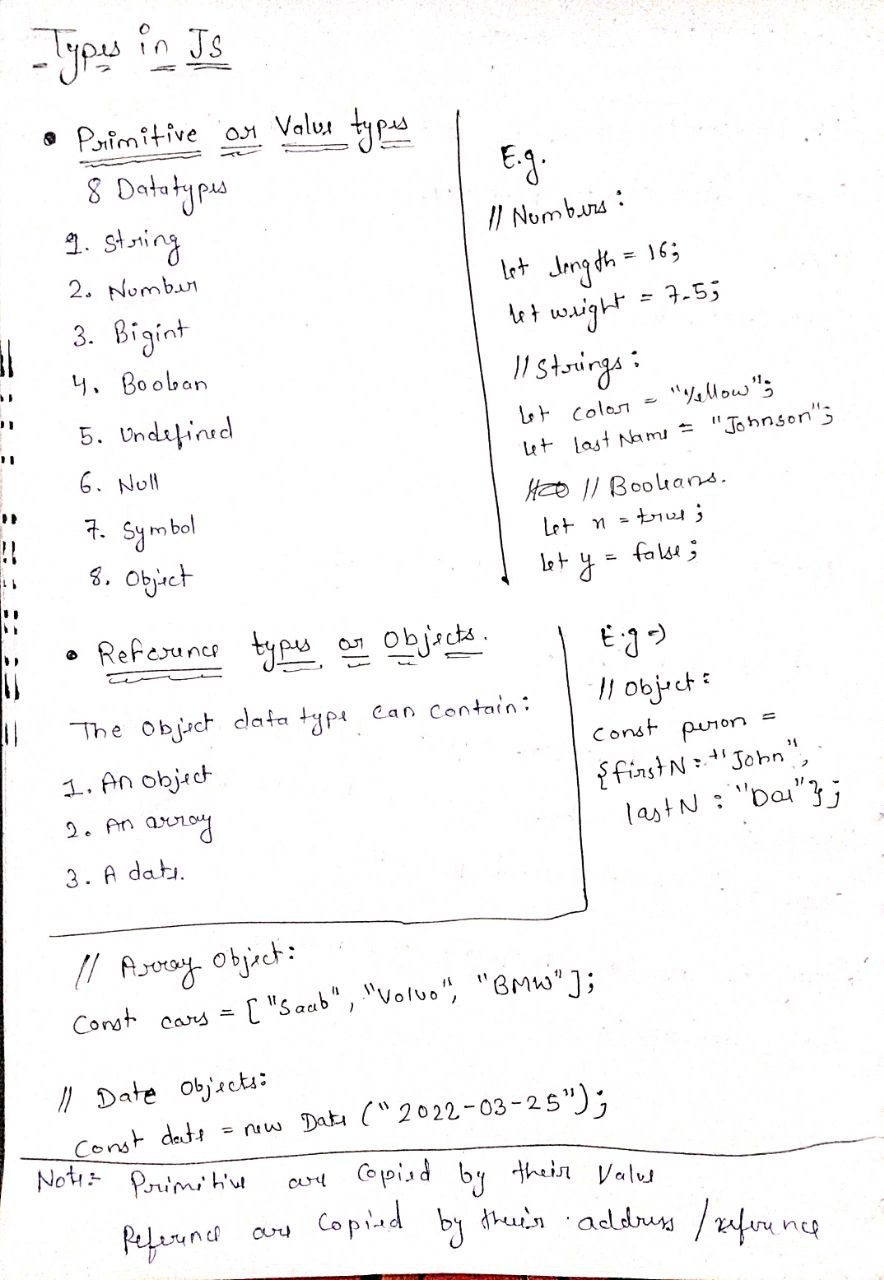 Types in JS
• Primitive or Value types
8 Datatypes
1. String
2. Number
3. Bigint
4. Boolean
5. Undefined
6. Null
7. Symbol
8. Object
E.g.
// Numbers:
let length = 16;
let weight = 7.5;
// Strings:
let color = "Yellow";
let lastName = "Johnson";
// Booleans.
Let x = true;
let y = false;
• Reference types or Objects.
The Object data type can contain:
1. An object
2. An array
3. A date.
E.g →
// Object:
const peron =
{firstN: "John",
lastN : "Doe"};
// Array Object:
Const cars = ["Saab", "Volvo", "BMW"];
// Date Objects:
Const date = new Date ("2022-03-25");
Note: Primitive are Copied by their Value
Reference are Copied by their address / reference